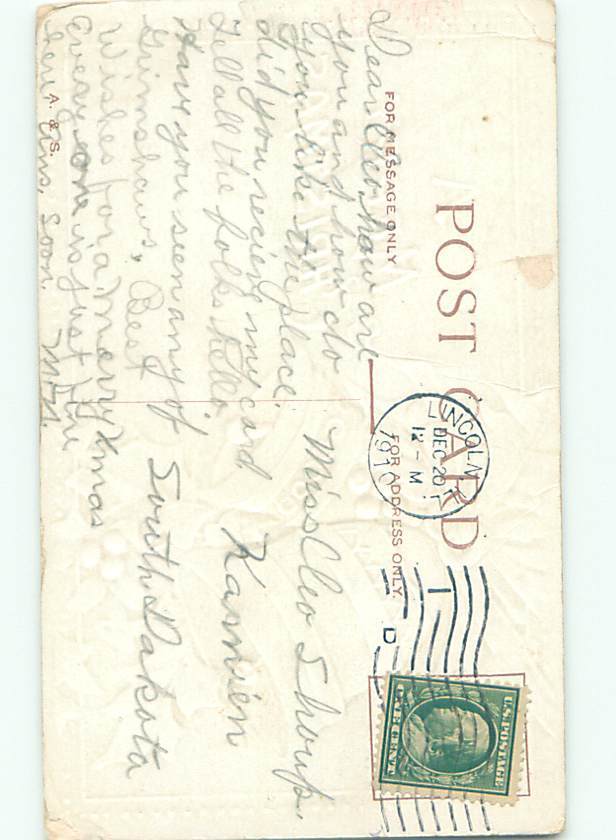 POST CARD
FOR MESSAGE ONLY
FOR ADDRESS ONLY.
Dear Cleo, how are
you and how do
you like the place.
did you recieve my card
Tell all the folks hello
Have you seen any of
Grimshaws. Best
Wishes for a Merry Xmas
Every one is just fine
here. Ans. soon.
A. & S.
Miss Cleo Shoup.
South Dakota
LINCOLN
DEC 20
12-M
1910
D
U.S. POSTAGE
ONE CENT